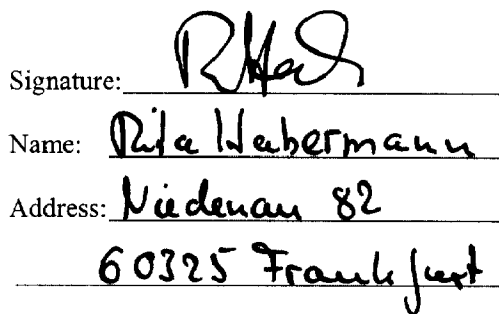 Signature:
Name: Rita Habermann
Address: Niedenau 82
60325 Frankfurt